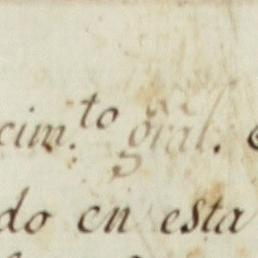 cim.to gral.
do en esta